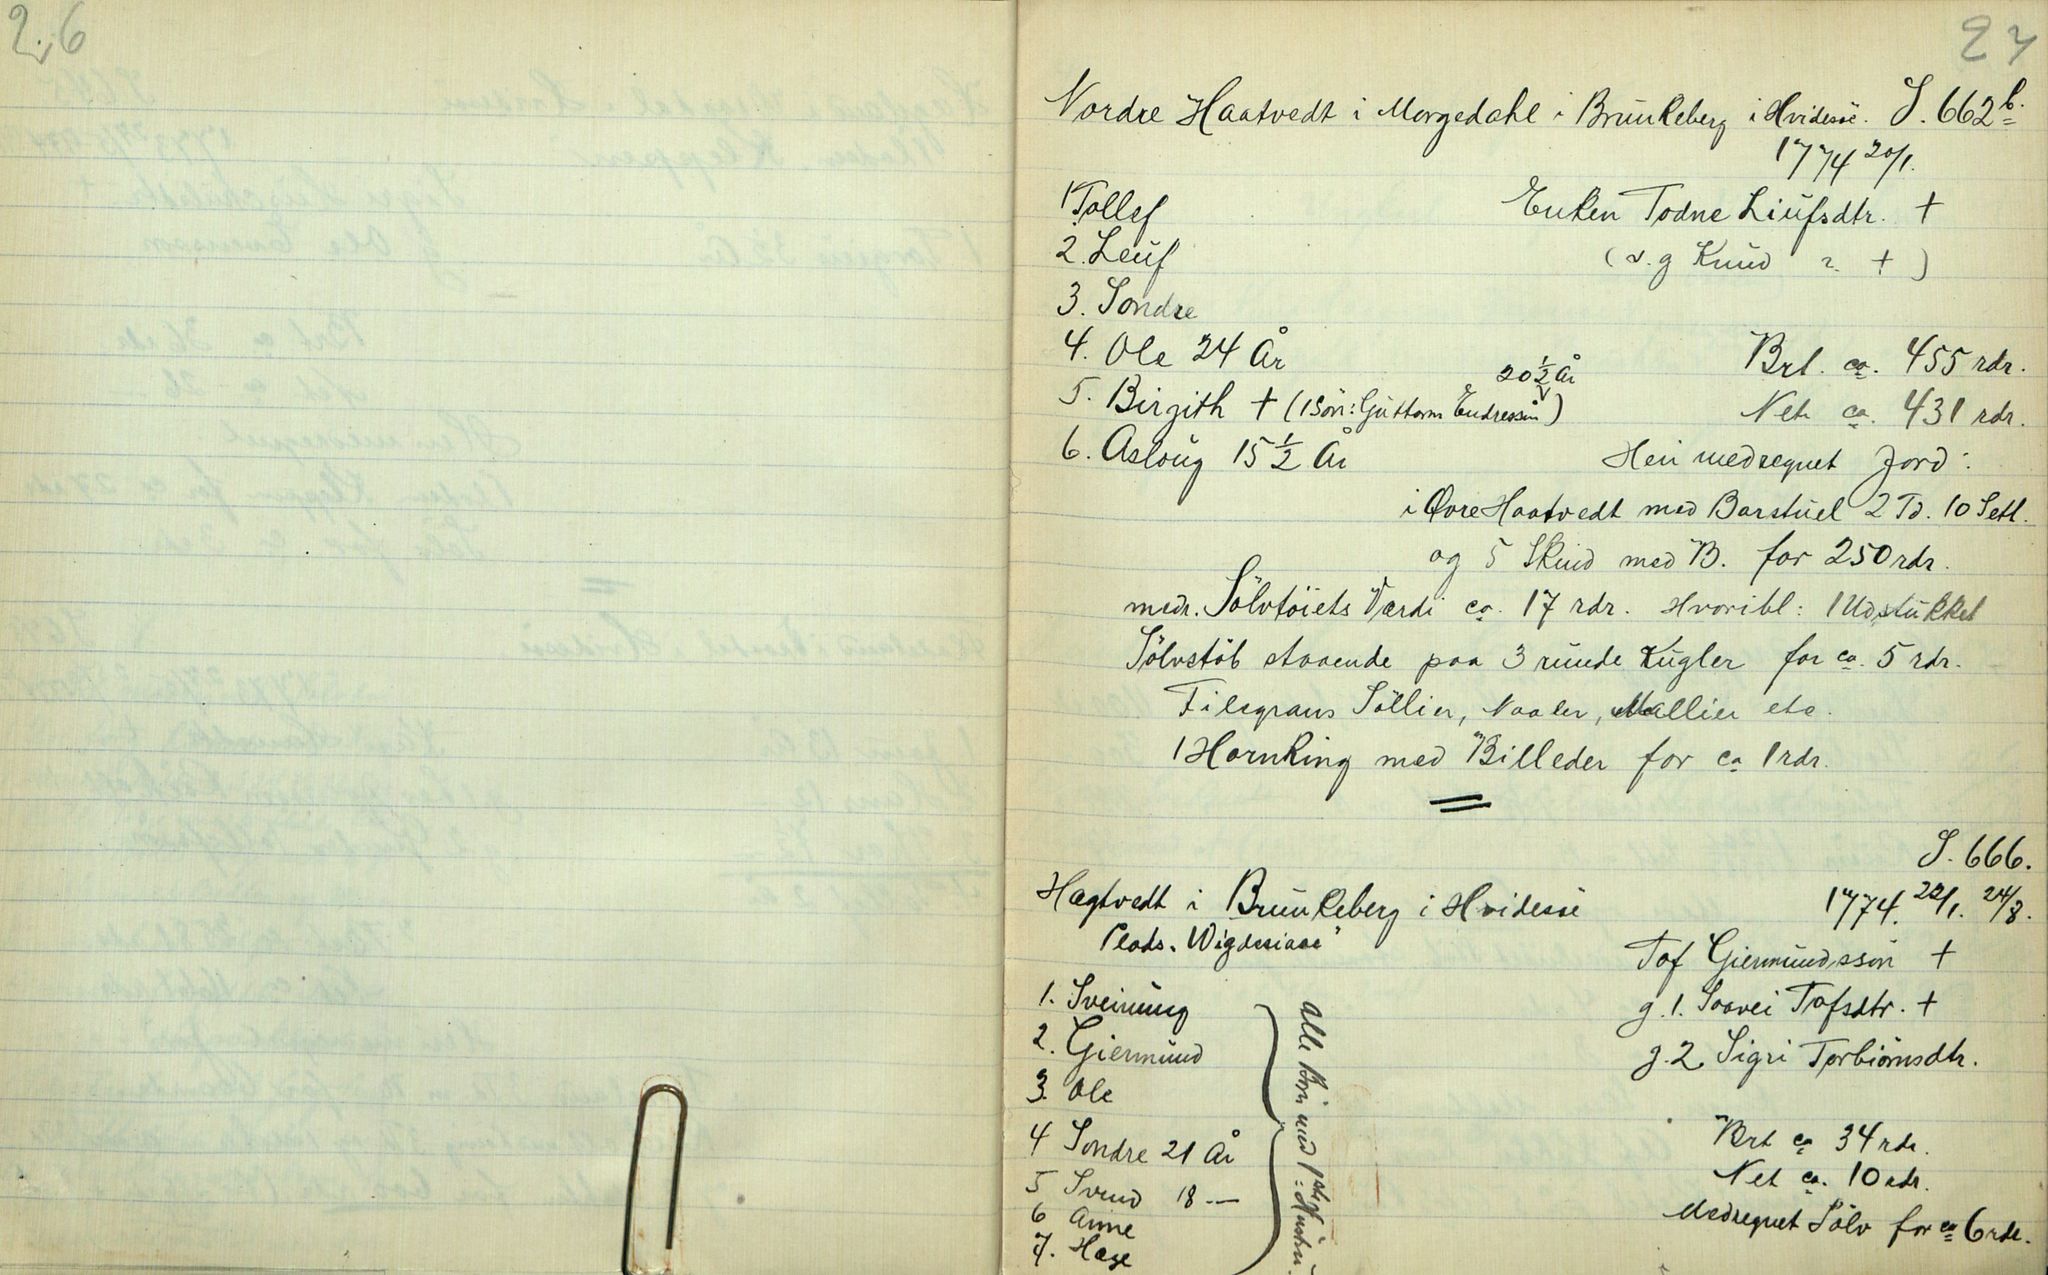 26
27
Nordre Haatvedt i Morgedahl i Brunkeberg i Hvidesøe. S. 662 b.
1774 20/1.
1 Tollef
Enken Todne Liufsdtr. +
2. Leuf
(v. g Knud ?. +)
3. Sondre
4. Ole 24 År
Brt. ca. 455 rdr.
20 1/2 År
5. Birgith + (1 Sön: Guttorm Endressøn)
Net ca. 431 rdr.
6. Asloug 15 1/2 År
Heri medregnet Jord:
i Øvre Haatvedt med Barstuel 2 Td. 10 Setl.
og 5 Skind med B. for 250 rdr.
medr. Sölvtöiets Værdi ca. 17 rdr. Hvoribl: 1 Udstukket
Sölvstöb staaende paa 3 runde Kugler for ca. 5 rdr.
Filegrans Söllier, Naaler, Mallier etc.
1 Hornring med Billeder for ca 1 rdr.
S. 666.
Hægtvedt i Brunkeberg i Hvidesöe
1774. 22/1. 24/8.
Plads. "Wigdesiaae"
Tof Giermundssøn +
1. Sveinung
g. 1. Saavei Tofsdtr. +
2. Giermund
g. 2 Sigri Torbiörnsdtr.
3. Ole
4 Sondre 21 År
Brt ca 34 rdr.
5 Svend 18 —
Net ca. 10 rdr.
6 Anne
Medregnet Sölv for ca 6 rdr.
7. Hæge
alle Börn med 1ste Hustru.